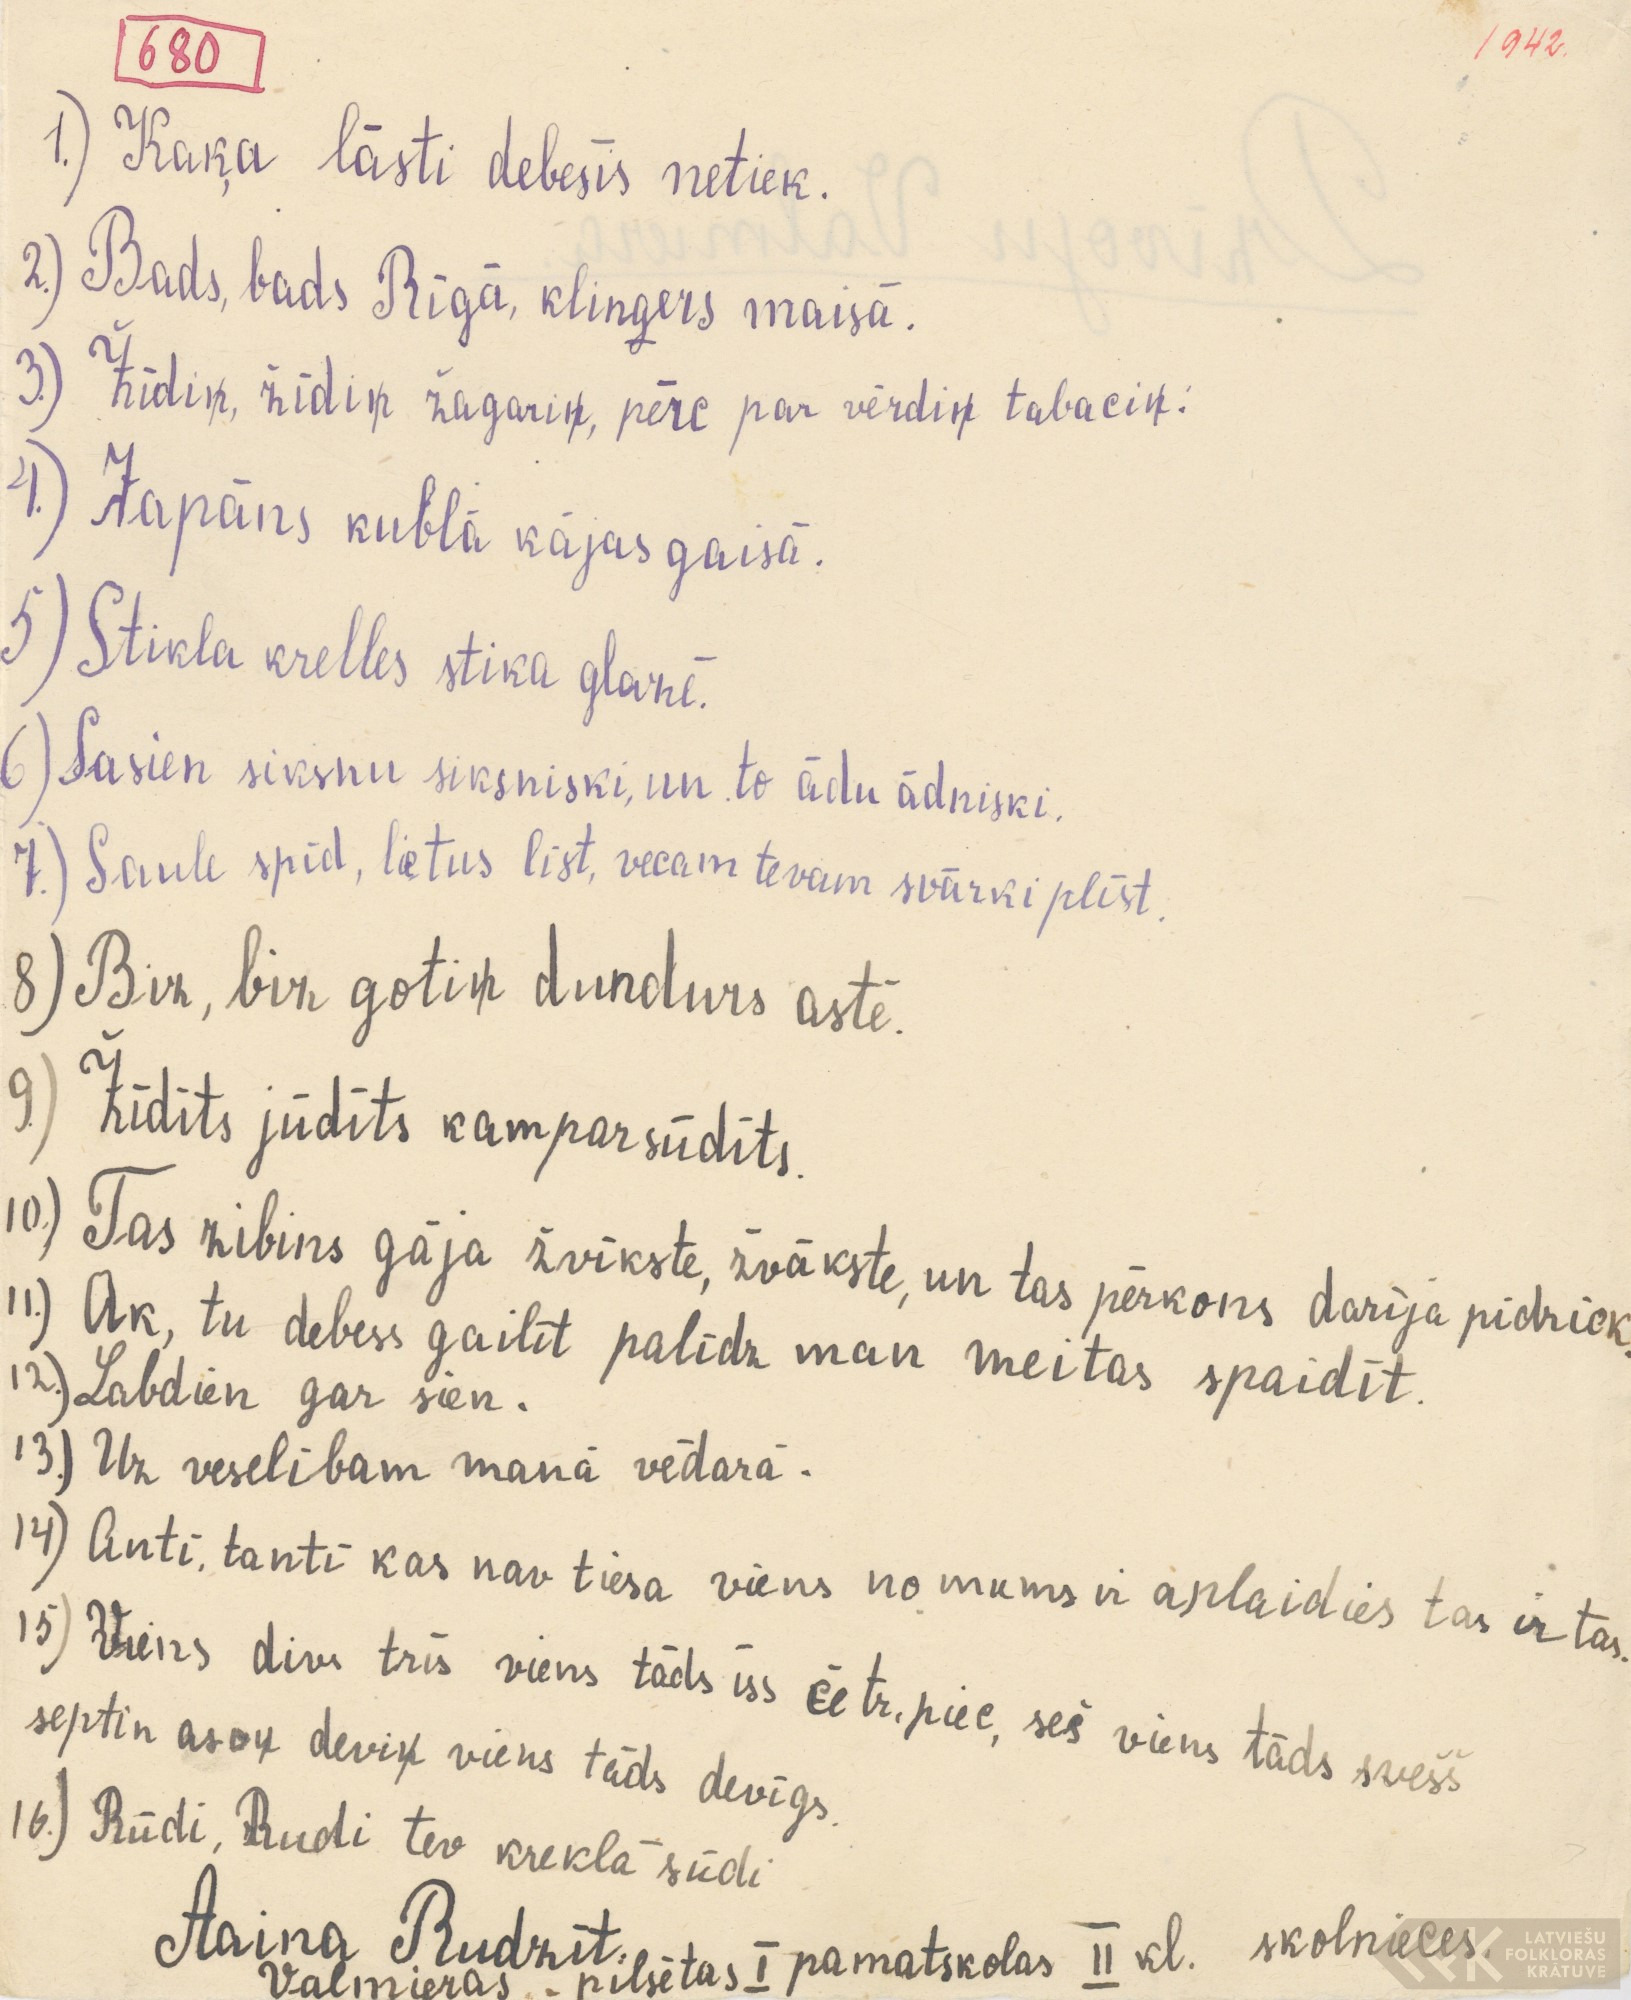 680
1942.
1.) Kaķa lāsti debesīs netiek.
2.) Bads, bads Rīgā, klingers maisā.
3.) Žīdiņ, žīdiņ žagariņ, pērc par vērdiņ tabaciņ:
4.) Japāns kublā kājas gaisā.
5.) Stikla krelles stika glazē.
6.) Sasien siksnu siksniski, un to ādu ādniski.
7.) Saule spīd, lietus līst, vecam tevam svārki plīst.
8.) Biz, biz gotiņ dundurs astē.
9.) Žīdīts jūdīts kamparsūdīts.
10.) Tas zibins gāja žvīkste, žvākste, un tas pērkons darīja pidriek.
11.) Ak, tu debess gailīt palīdz man meitas spaidīt.
12.) Labdien gar sien.
13.) Uz veselībam manā vēdarā.
14.) Antī, tantī kas nav tiesa viens no mums ir aplaidies tas ir tas.
15.) Viens divs trīs viens tāds īss četr, piec, seš viens tāds svešš
septiņ asoņ deviņ viens tāds devīgs.
16.) Rūdi, Rudi tev kreklā sūdi
Aaina Rudzīt.
Valmieras. pilsētas I pamatskolas II kl. skolnieces.
LATVIEŠU
FOLKLORAS
KRĀTUVE